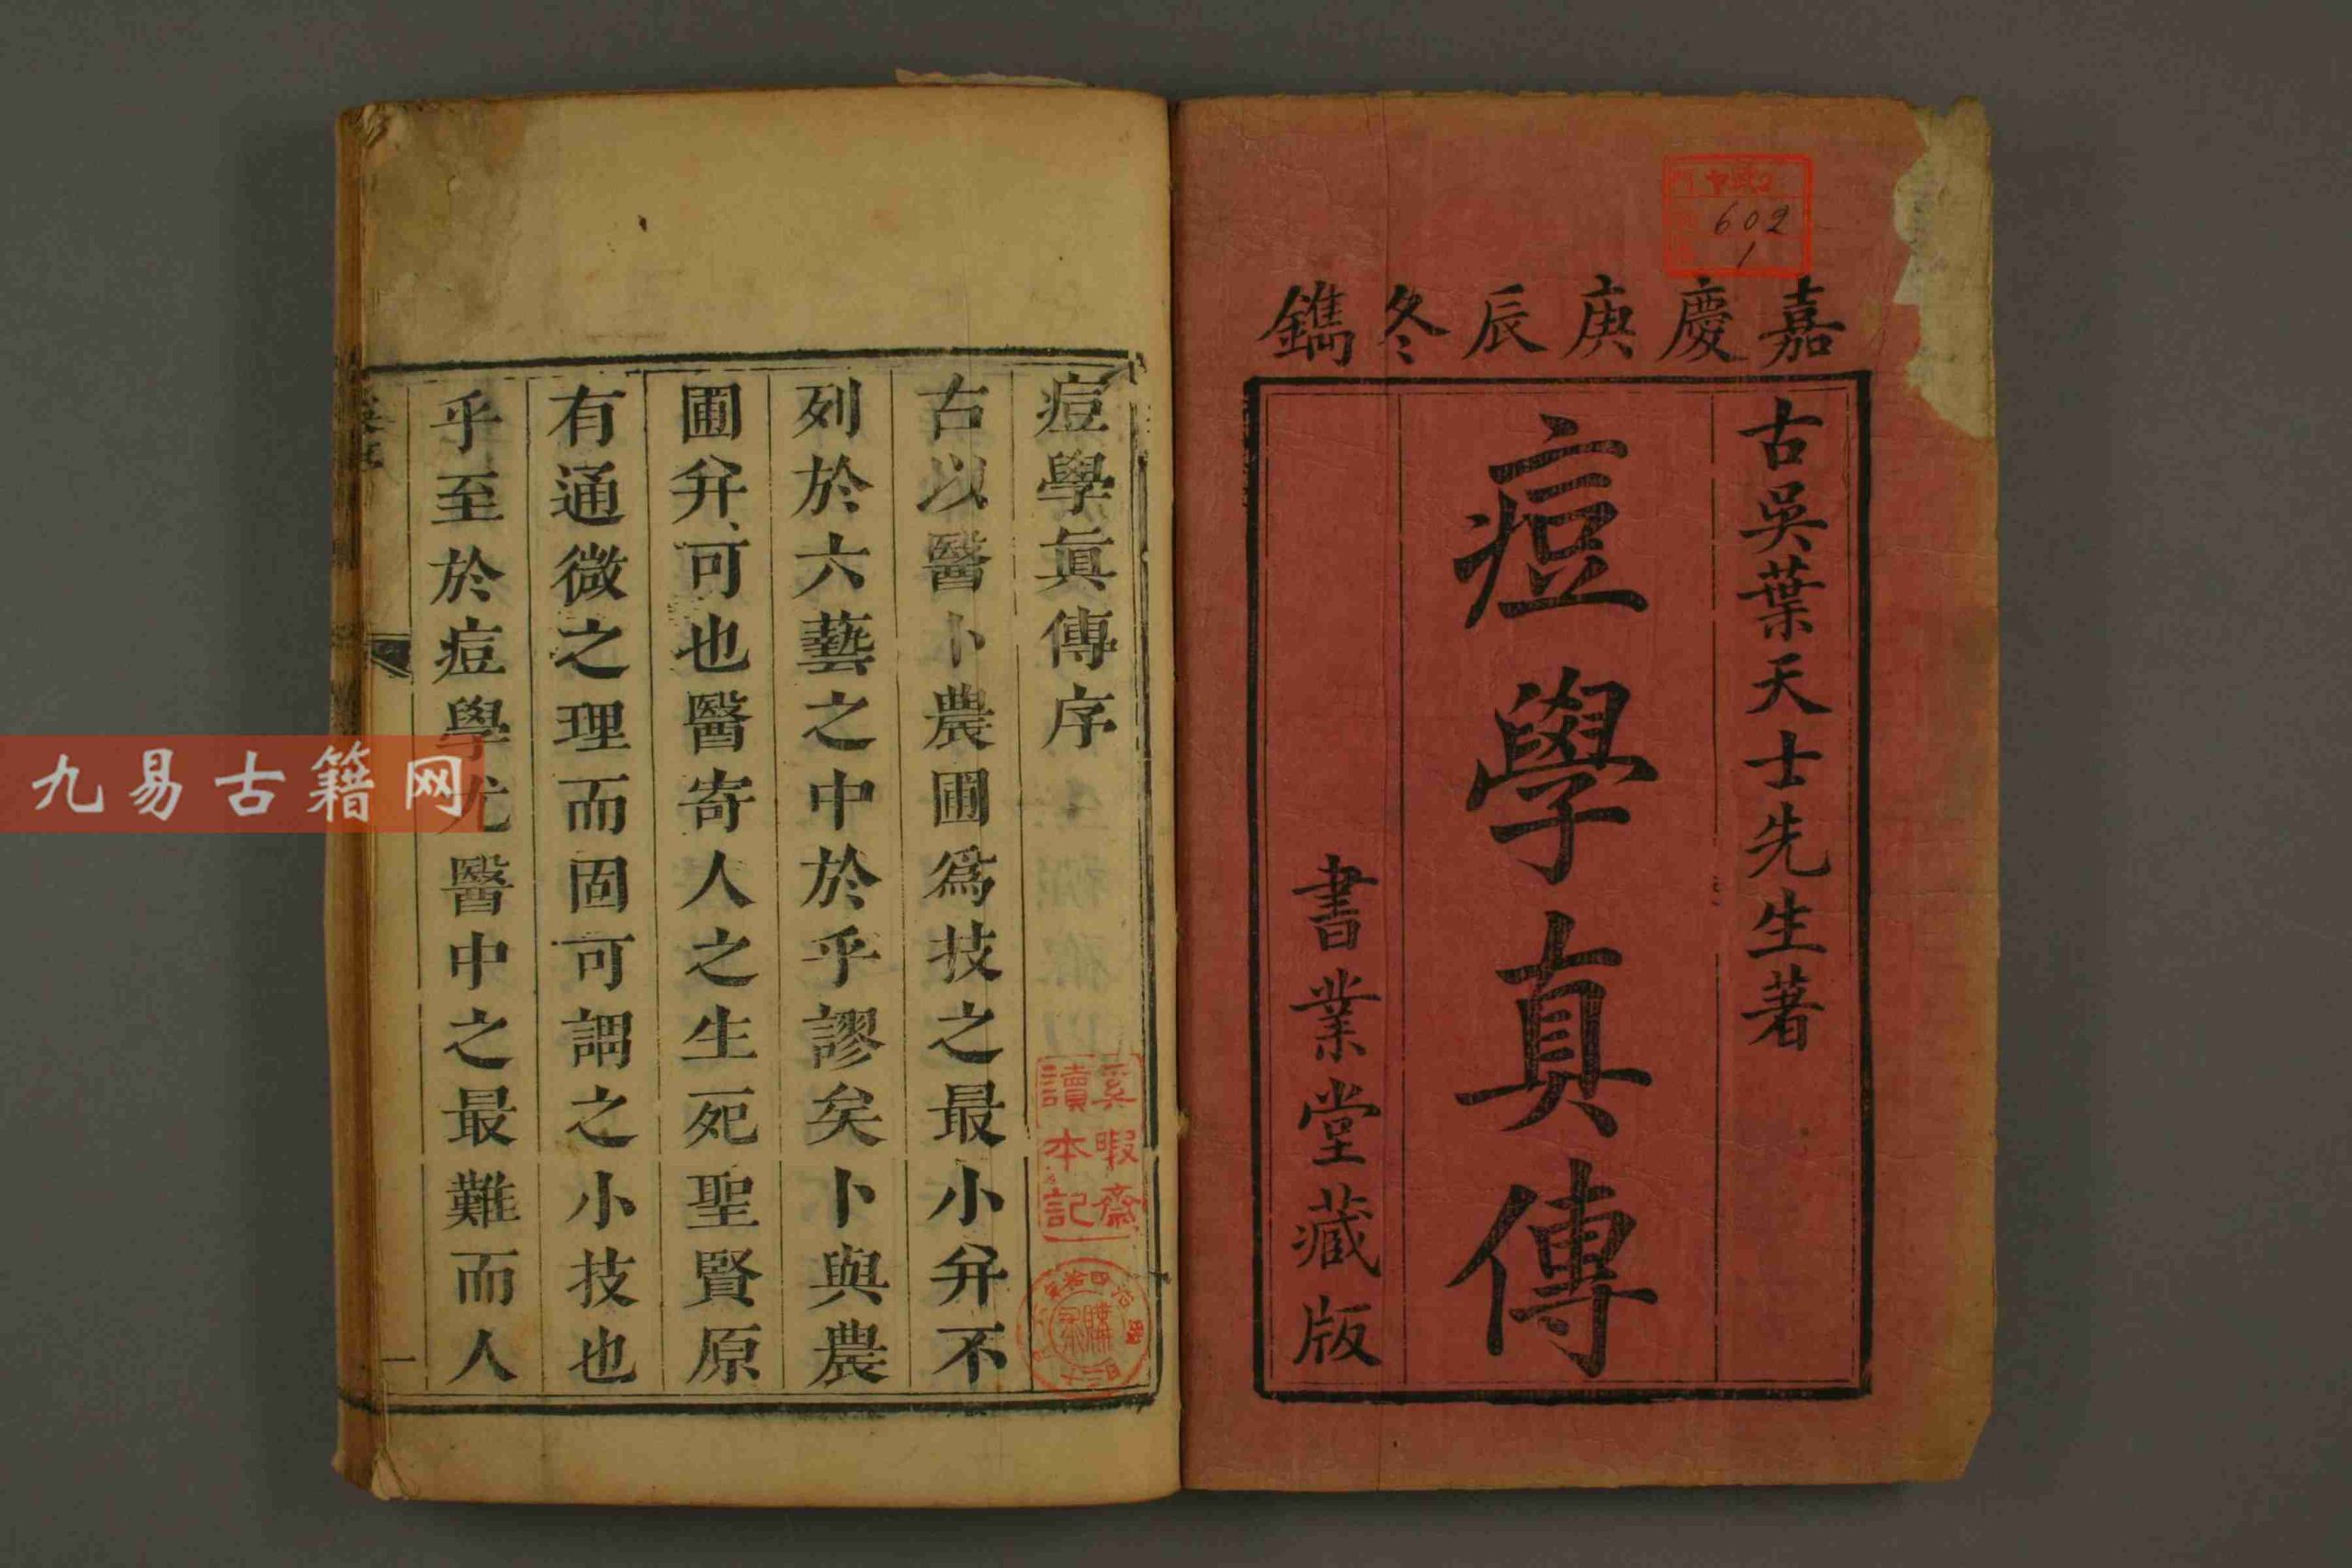 嘉慶庚辰冬鐫
古吳葉天士先生著
痘學真傳
書業堂藏版
602
1
痘學眞傳序
古以醫卜農圃爲技之最小弁不
列於六藝之中於乎謬矣卜與農
圃弁可也醫寄人之生死聖賢原
有通微之理而固可謂之小技也
乎至於痘學尤醫中之最難而人
一
暇齋
讀本記
九易古籍网